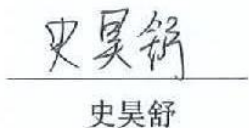 史昊舒
史昊舒